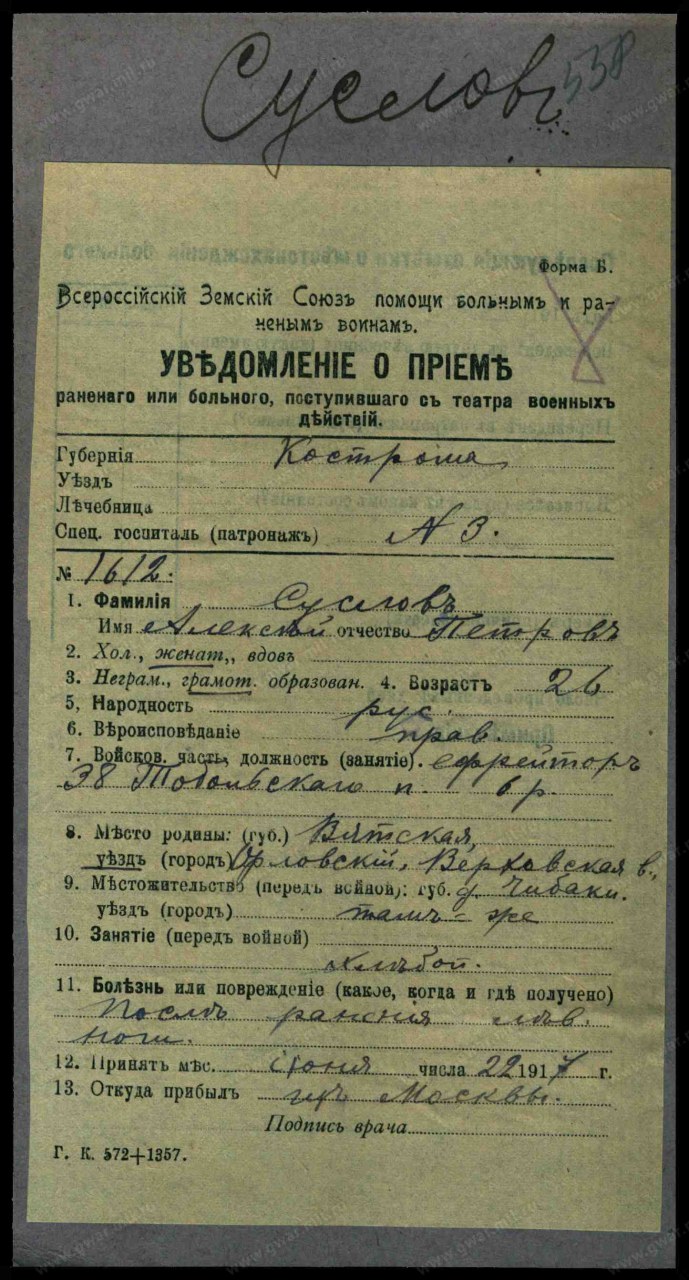 Сусловъ 558
Форма Б.
Всероссійскій Земскій Союзъ помощи больнымъ и ра-
ненымъ воинамъ.
УВѢДОМЛЕНІЕ О ПРІЕМѢ
раненаго или больного, поступившаго съ театра военныхъ
дѣйствій.
Губернія Кострома
Уѣздъ
Лѣчебница
Спец. госпиталь (патронажъ) N 3.
№ 1612.
1. Фамилія Сусловъ
Имя Алексѣй отчество Петровъ
2. Хол., женат., вдовъ
3. Неграм., грамот. образован. 4. Возрастъ 26
5, Народность рус.
6. Вѣроисповѣданіе прав.
7. Войсков. часть, должность (занятіе). ефрейторъ
38 Тобольскаго п. 6 р.
8. Мѣсто родины: (губ.) Вятская,
уѣздъ (городъ) Орловскій, Верховская в.,
9. Мѣстожительство (передъ войной): губ. д. Чибаки.
уѣздъ (городъ) тамъ-же
10. Занятіе (передъ войной)
хлѣбоп.
11. Болѣзнь или поврежденіе (какое, когда и гдѣ получено)
Послѣ раненія лѣв.
ноги.
12. Принятъ мѣс. Іюня числа 22 1917 г.
13. Откуда прибылъ изъ Москвы.
Подпись врача
Г. К. 572+1357.
www.gwar.mil.ru